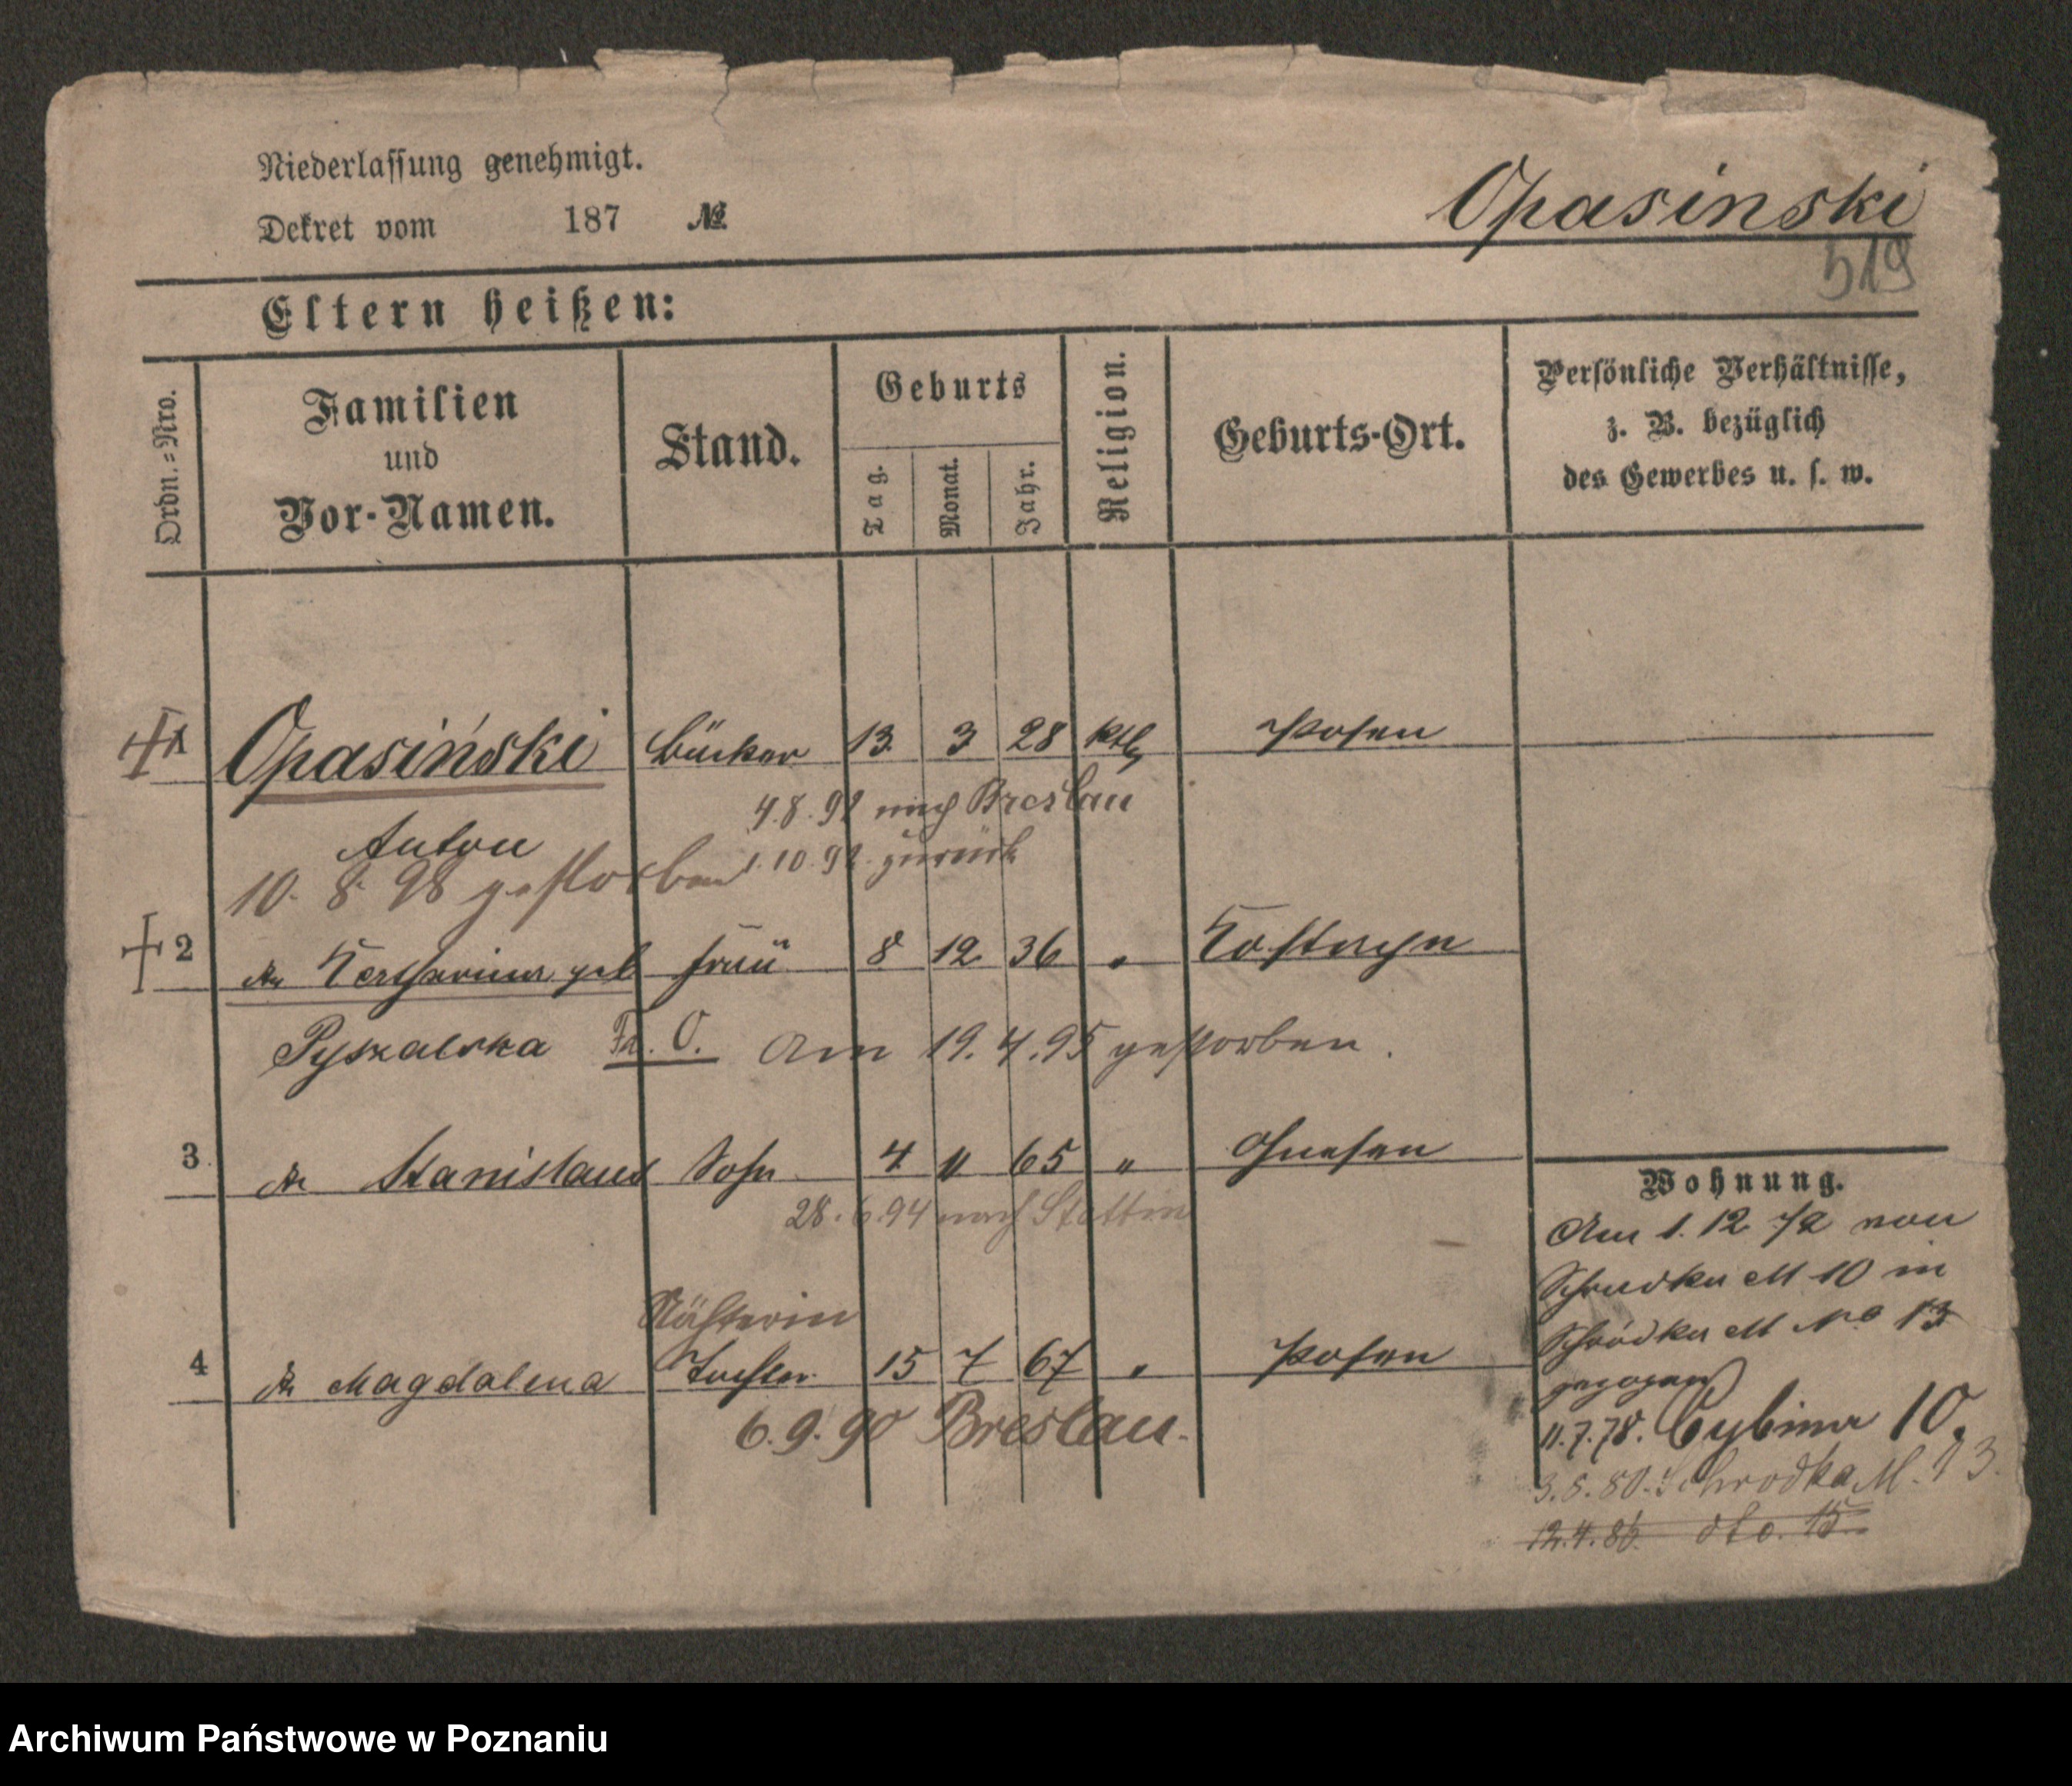 Niederlassung genehmigt.
Dekret vom 187 №
Opasinski
519
Eltern heißen:
Ordn.-Nro.
Familien
und
Vor-Namen.
Stand.
Geburts
Tag.
Monat.
Jahr.
Religion.
Geburts-Ort.
Persönliche Verhältnisse,
z. B. bezüglich
des Gewerbes u. s. w.
1 Opasiński Bäcker 13. 3 28 kth Posen
4.8.92 nach Breslau
Anton
1.10.92. zurück
10. 8. 98 gestorben
2 Katharina geb Frau 8 12. 36 " Kostrzyn
Pyszalska Fr. O. Am 19.4.95 gestorben.
3. Stanislaus Sohn 4 11 65 " Gnesen
28.6.94 nach Stettin
Nähterin
4 Magdalena Tochter 15 7 67 " Posen
6.9.90 Breslau.
Wohnung.
Am 1.12.72 von
Schrodka M 10 in
Schrodka M No 13
gezogen
11.7.78. Cybina 10.
3.5.80. Schrodka M. 13.
12.4.86. dto. 15.
Archiwum Państwowe w Poznaniu